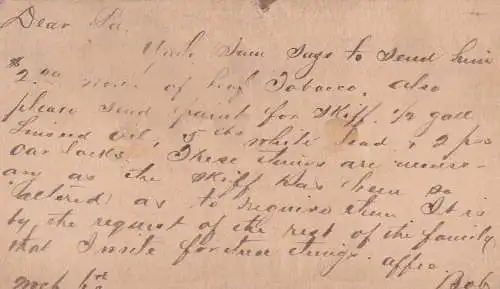 Dear Pa.
Uncle Sam says to send him
$2.00 worth of leaf Tobacco, also
please send paint for Skiff. 1/2 gall
Linseed Oil, 15 lbs white lead & 2 prs
oar locks. These things are necess-
ary as the skiff has been so
altered as to require them. It is
by the request of the rest of the family
that I write for these things. affec.
Bob